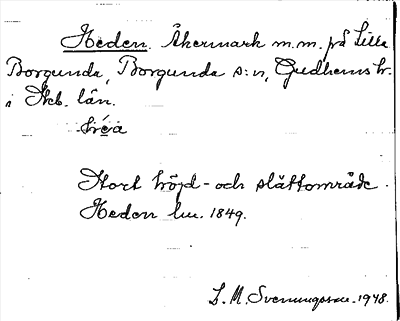 Heden. Åkermark m.m. på Lilla
Borgunda, Borgunda s:n, Gudhems hr.
i Skb. län.
Stort höjd- och slättområde.
Heden lm. 1849.
S. M. Svenungsson. 1948.